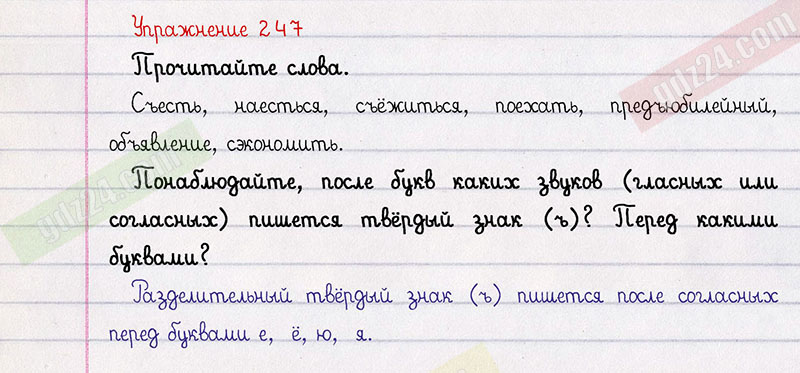 Упражнение 247
Прочитайте слова.
Съесть, наесться, съёжиться, поехать, предъюбилейный,
объявление, сэкономить.
Понаблюдайте, после букв каких звуков (гласных или
согласных) пишется твёрдый знак (ъ)? Перед какими
буквами?
Разделительный твёрдый знак (ъ) пишется после согласных
перед буквами е, ё, ю, я.
gdz24.com
gdz24.com